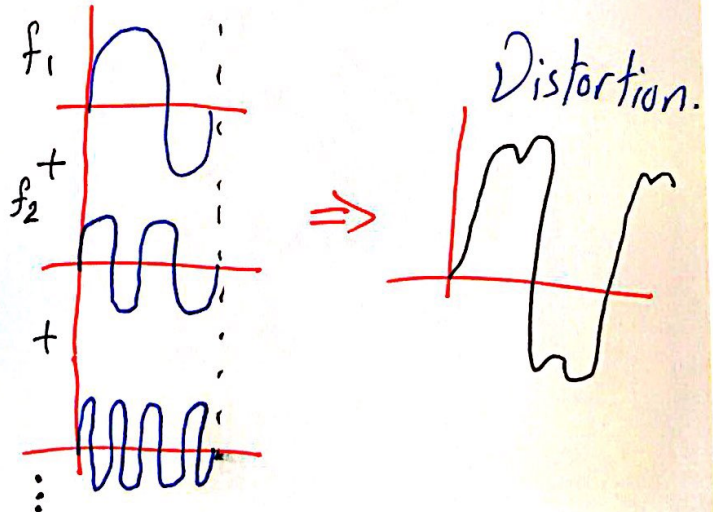 f₁
+
f₂
+
⋮
⇒
Distortion.